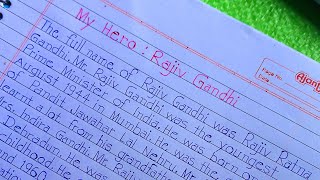 My Hero : Rajiv Gandhi
Page No.
Date
Ajanta
The full name of Rajiv Gandhi was Rajiv Ratna
Gandhi. Mr. Rajiv Gandhi was the youngest
Prime Minister of India. He was born on
August 1944 in Mumbai. He was the
of Pandit Jawahar Lal Nehru. Mr.
learnt a lot from his grandfath
rs. Indira Gandhi. Mr. Raji
Dehradun. he was
childhood. He
and 1960